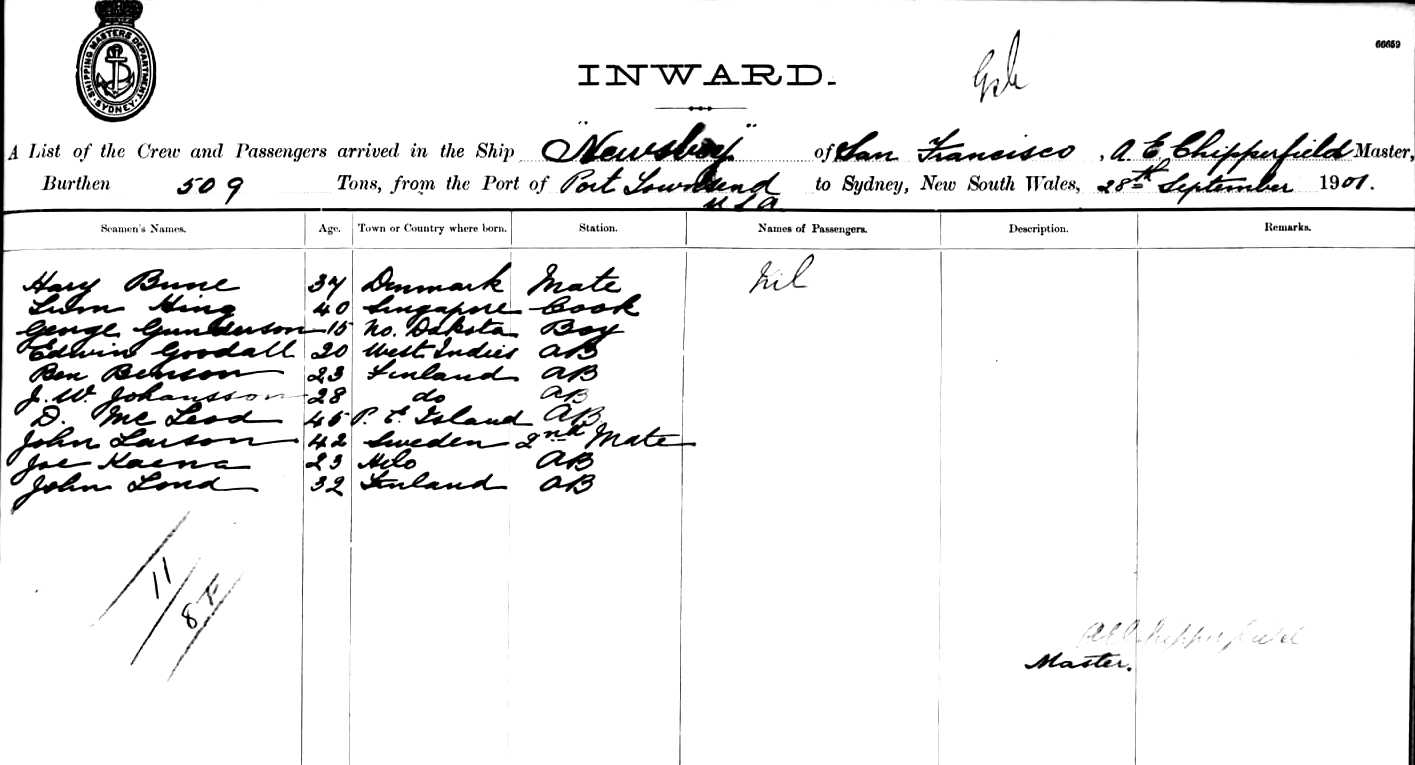 SHIPPING MASTERS DEPARTMENT
SYDNEY
66659
INWARD.
A List of the Crew and Passengers arrived in the Ship "Newsboy" of San Francisco, A. E. Chipperfield Master,
Burthen 509 Tons, from the Port of Port Townsend USA to Sydney, New South Wales, 28th September 1901.
Seamen's Names. Age. Town or Country where born. Station. Names of Passengers. Description. Remarks.
Hary Bune 37 Denmark Mate Nil
Lum Hing 40 Singapore Cook
George Gunderson 15 No. Dakota Boy
Edwin Goodall 20 West Indies AB
Ben Benson 23 Finland AB
J. W. Johansson 28 do AB
D. Mc Leod 45 P. E. Island AB
John Larson 42 Sweden 2nd Mate
Joe Kaena 23 Hilo AB
John Lond 32 Finland AB
11
A E Chipperfield
Master.